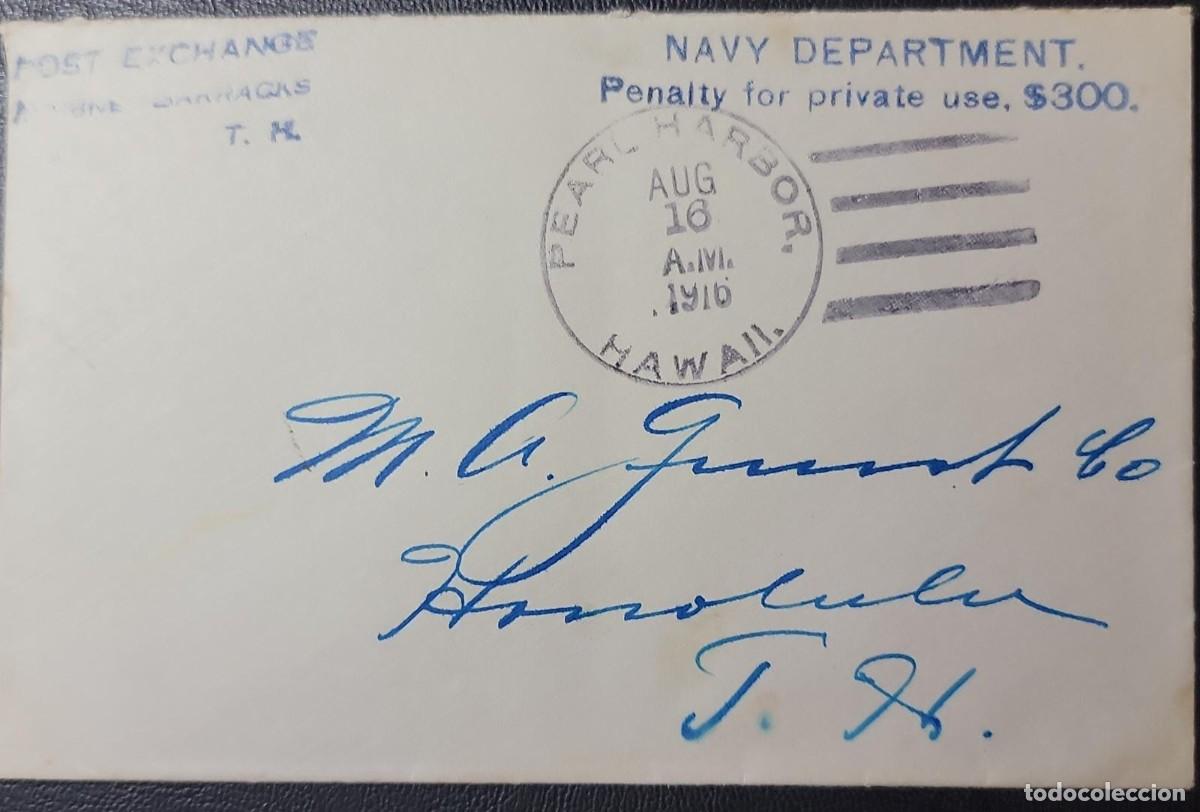 POST EXCHANGE
MARINE BARRACKS
T. H.
NAVY DEPARTMENT.
Penalty for private use, $300.
PEARL HARBOR,
AUG
16
A.M.
1916
HAWAII.
M. A. Gunst Co
Honolulu
T. H.
todocoleccion